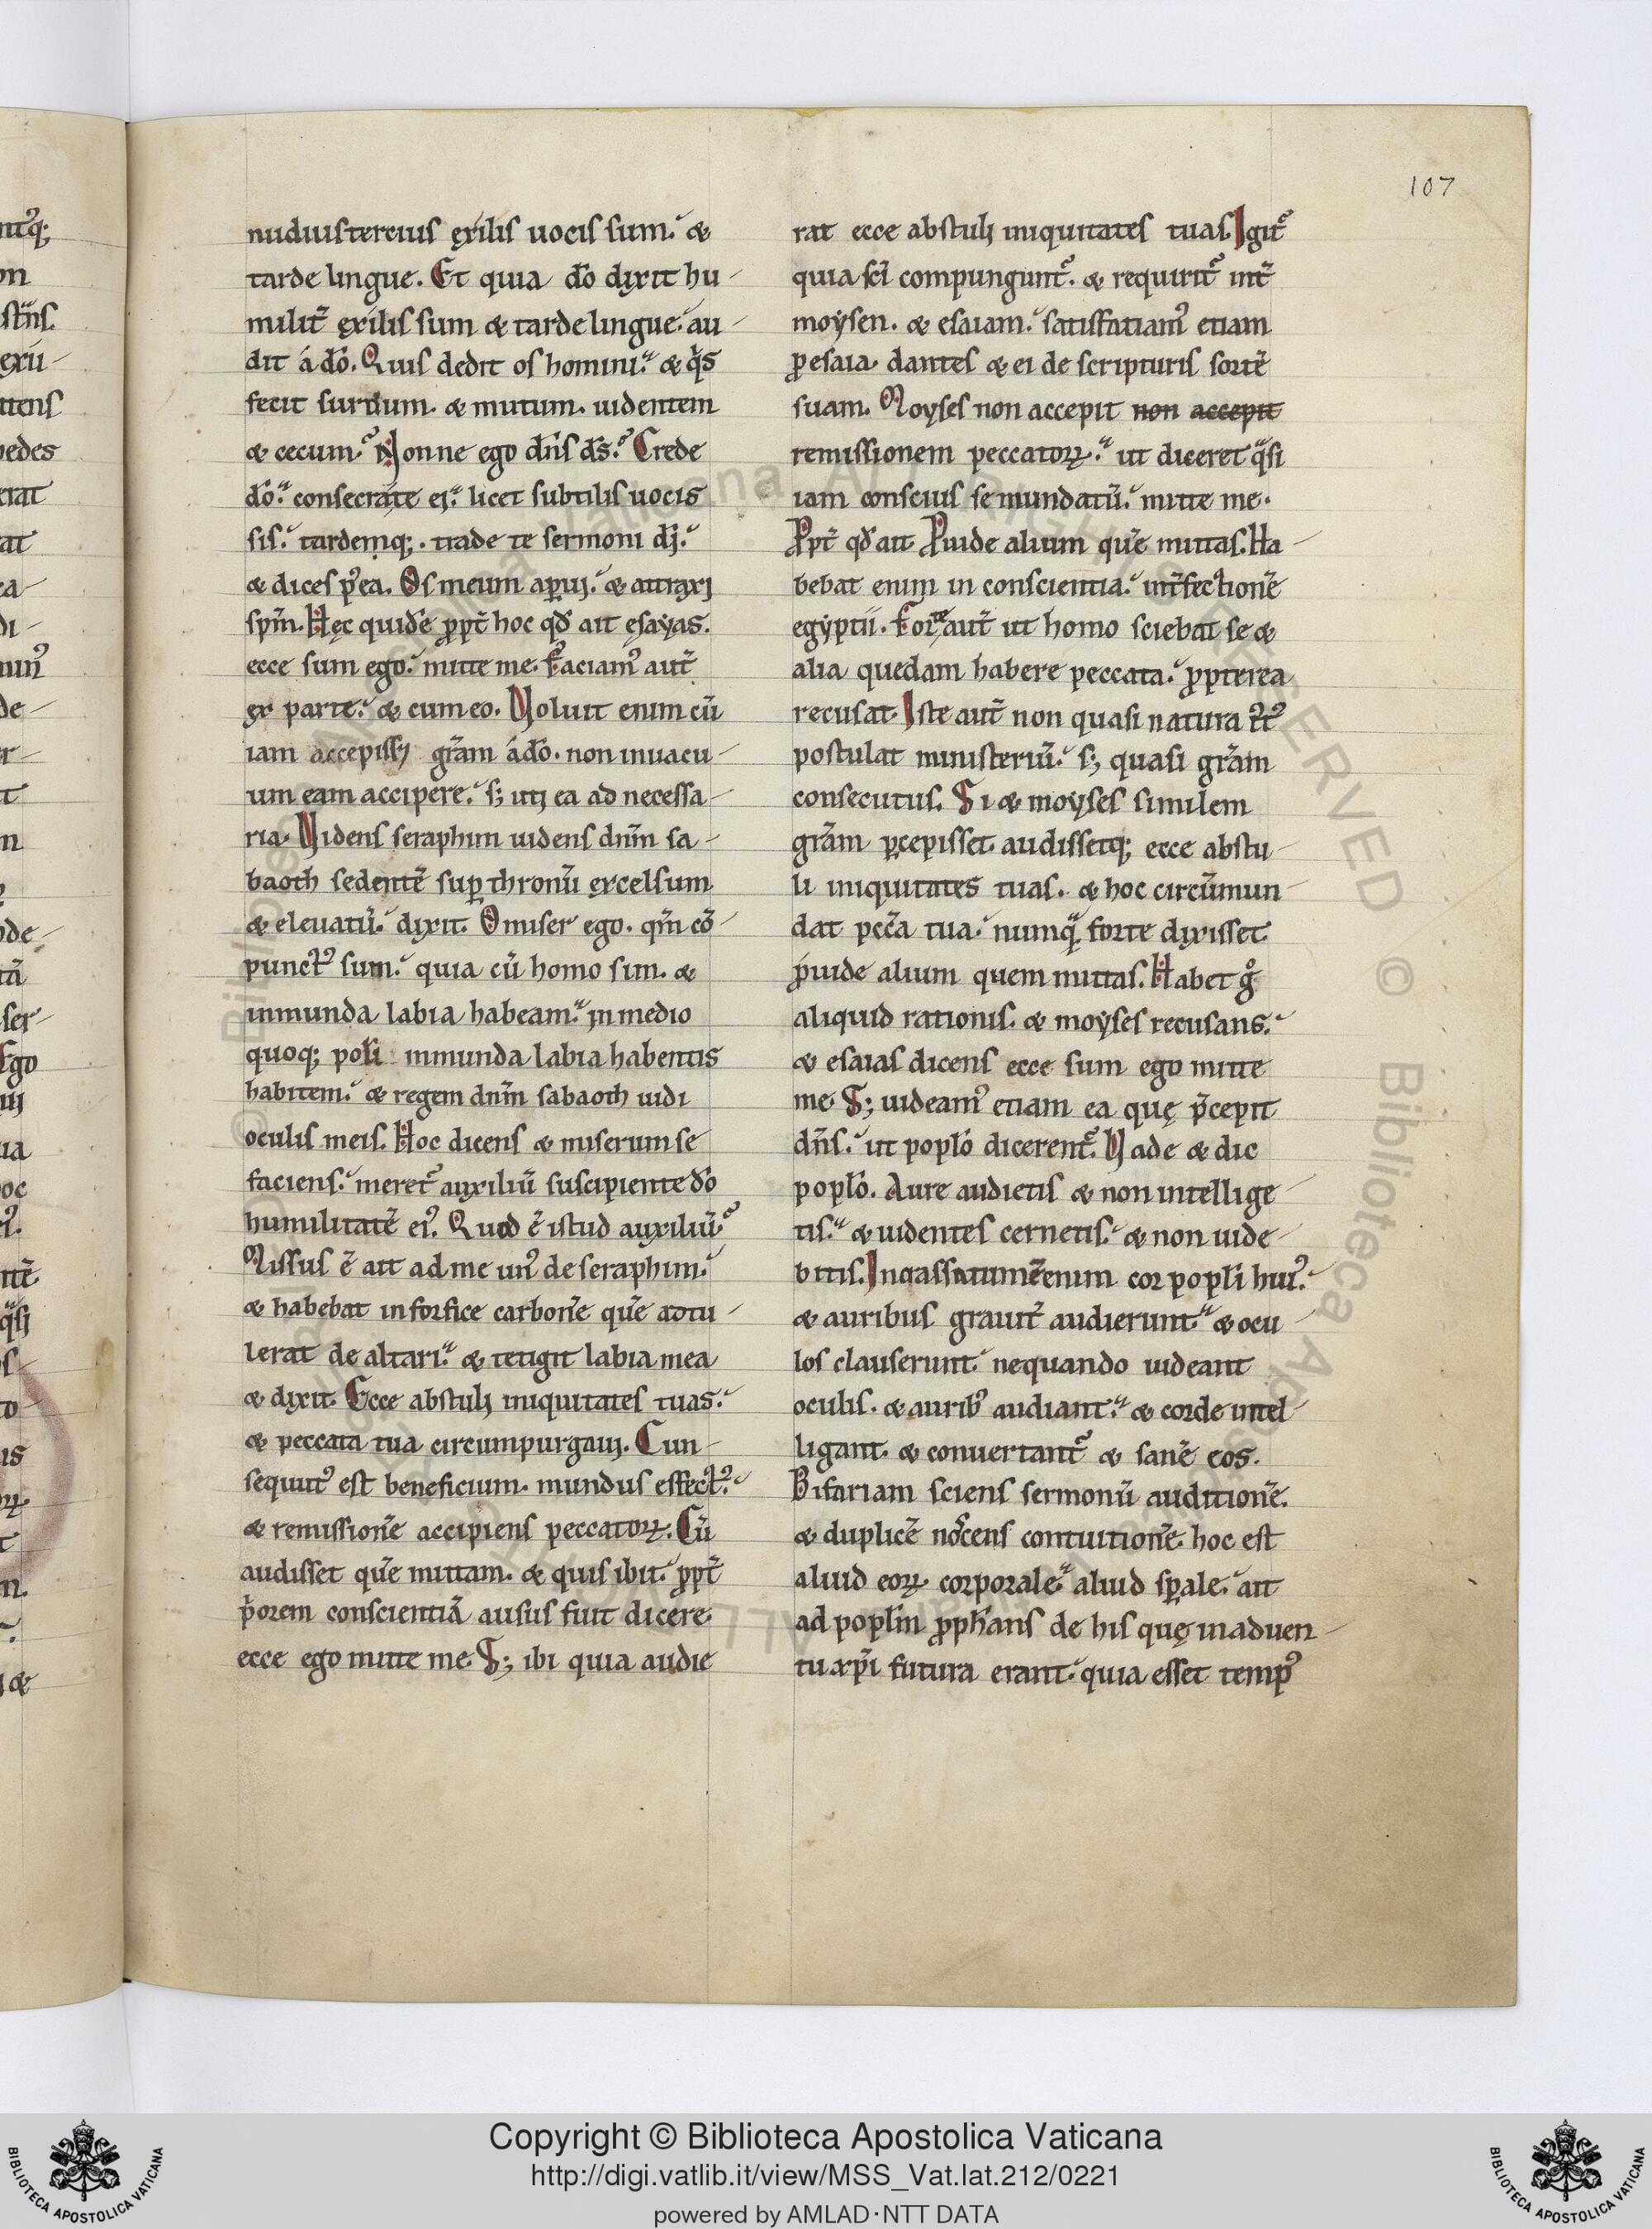 107
nudiustercius exilis uocis sum. &
tarde lingue. Et quia dõ dixit hu-
milit̃ exilis sum & tarde lingue. au-
dit á dõ. Quis dedit os homini. & q̃s
fecit surdum. & mutum. uidentem
& cecum. Nonne ego dñs d̃s. Crede
dõ. consecrate ei. licet subtilis uocis
sis. tardemq;. trade te sermoni dj̃.
& dices p̾ea. Os meum aperuj. & attraxj
sp̃m. Hęc quidẽ p̱pt̃ hoc qd̃ ait esayas.
ecce sum ego. mitte me. Faciamꝰ aut̃
ex parte. & cum eo. Noluit enim cũ
iam accepissj gr̃am á dõ. non inuacu-
um eam accipere. s; utj ea ad necessa-
ria. Videns seraphim uidens dñm sa-
baoth sedentẽ suꝑ thronũ excelsum
& eleuatũ. dixit. O miser ego. qm̃ cõ-
punctꝰ sum. quia cũ homo sim. &
inmunda labia habeam. in medio
quoq; popl̃i inmunda labia habentis
habitem. & regem dñm sabaoth uidi
oculis meis. Hoc dicens & miserum se
faciens. meret᷑ auxiliũ suscipiente dõ
humilitatẽ eiꝰ. Quod ẽ istud auxiliũ.
Missus ẽ ait ad me unꝰ de seraphim.
& habebat in forfice carbonẽ quẽ adtu-
lerat de altari. & tetigit labia mea
& dixit. Ecce abstulj iniquitates tuas.
& peccata tua circumpurgauj. Cun-
sequutꝰ est beneficium. mundus effectꝰ.
& remissionẽ accipiens peccatoꝝ. Cũ
audisset quẽ mittam. & quis ibit. p̱pt̃
p̾orem conscientiã ausus fuit dicere
ecce ego mitte me. S; ibi quia audie
rat ecce abstulj iniquitates tuas. Igit᷑
quia sc̃i compungunt᷑. & requirit᷑ int̃
moysen. & esaiam. satisfatiamꝰ etiam
ꝓ esaia. dantes & ei de scripturis sortẽ
suam. Moyses non accepit non accepit
remissionem peccatoꝝ. ut diceret q̃si
iam conscius se mundatũ. mitte me.
Ꝓpt̃ qd̃ ait Ꝓuide alium quẽ mittas. Ha-
bebat enim in conscientia. int̃fectionẽ
egyptii. Forte aut̃ ut homo sciebat se &
alia quedam habere peccata. ꝓpterea
recusat. Iste aut̃ non quasi natura
postulat ministeriũ. s; quasi gr̃am
consecutus. Si & moyses similem
gr̃am ꝑcepisset. audissetq; ecce abstu-
li iniquitates tuas. & hoc circũmun-
dat pcc̃a tua. numq̃ forte dixisset
ꝓuide alium quem mittas. Habet g̊
aliquid rationis. & moyses recusans.
& esaias dicens ecce sum ego mitte
me. S; uideamꝰ etiam ea quę p̃cepit
dñs. ut popl̃o dicerent᷑. Vade & dic
popl̃o. Aure audietis & non intellige-
tis. & uidentes cernetis. & non uide-
bitis. Incassatum ẽ enim cor popl̃i huiꝰ.
& auribus grauit̃ audierunt. & ocu-
los clauserunt. nequando uideant
oculis. & auribꝰ audiant. & corde intel-
ligant. & conuertant᷑ & sanẽ eos.
Bifariam sciens sermonũ auditionẽ.
& duplicẽ noscens contuitionẽ. hoc est
aliud eoꝝ corporale. aliud sp̃ale. ait
ad popl̃m ꝓph̃ans de his quę in aduen-
tu xp̃i futura erant. quia esset tempꝰ
Copyright © Biblioteca Apostolica Vaticana
http://digi.vatlib.it/view/MSS_Vat.lat.212/0221
powered by AMLAD·NTT DATA